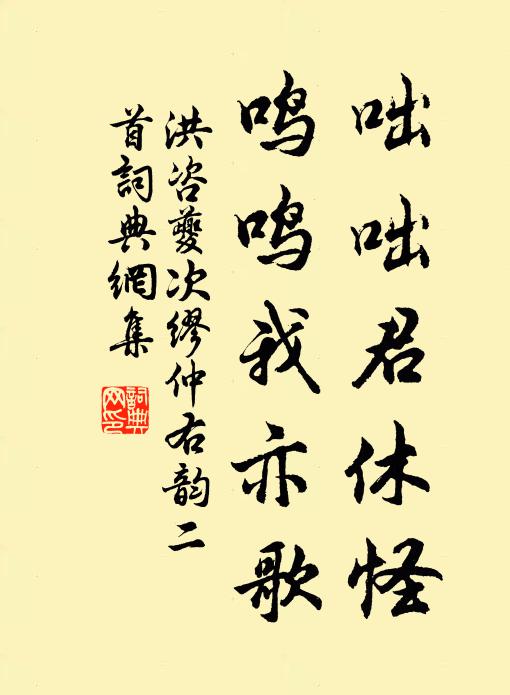 咄咄君休怪
鸣鸣我亦歌
洪咨夔次缪仲右韵二
首詞典網集
詞典
网印